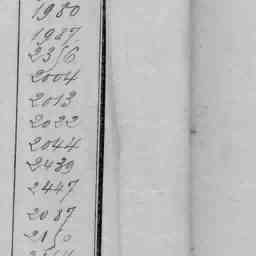 1980
1987
2356
2004
2013
2022
2044
2439
2447
2087
2150